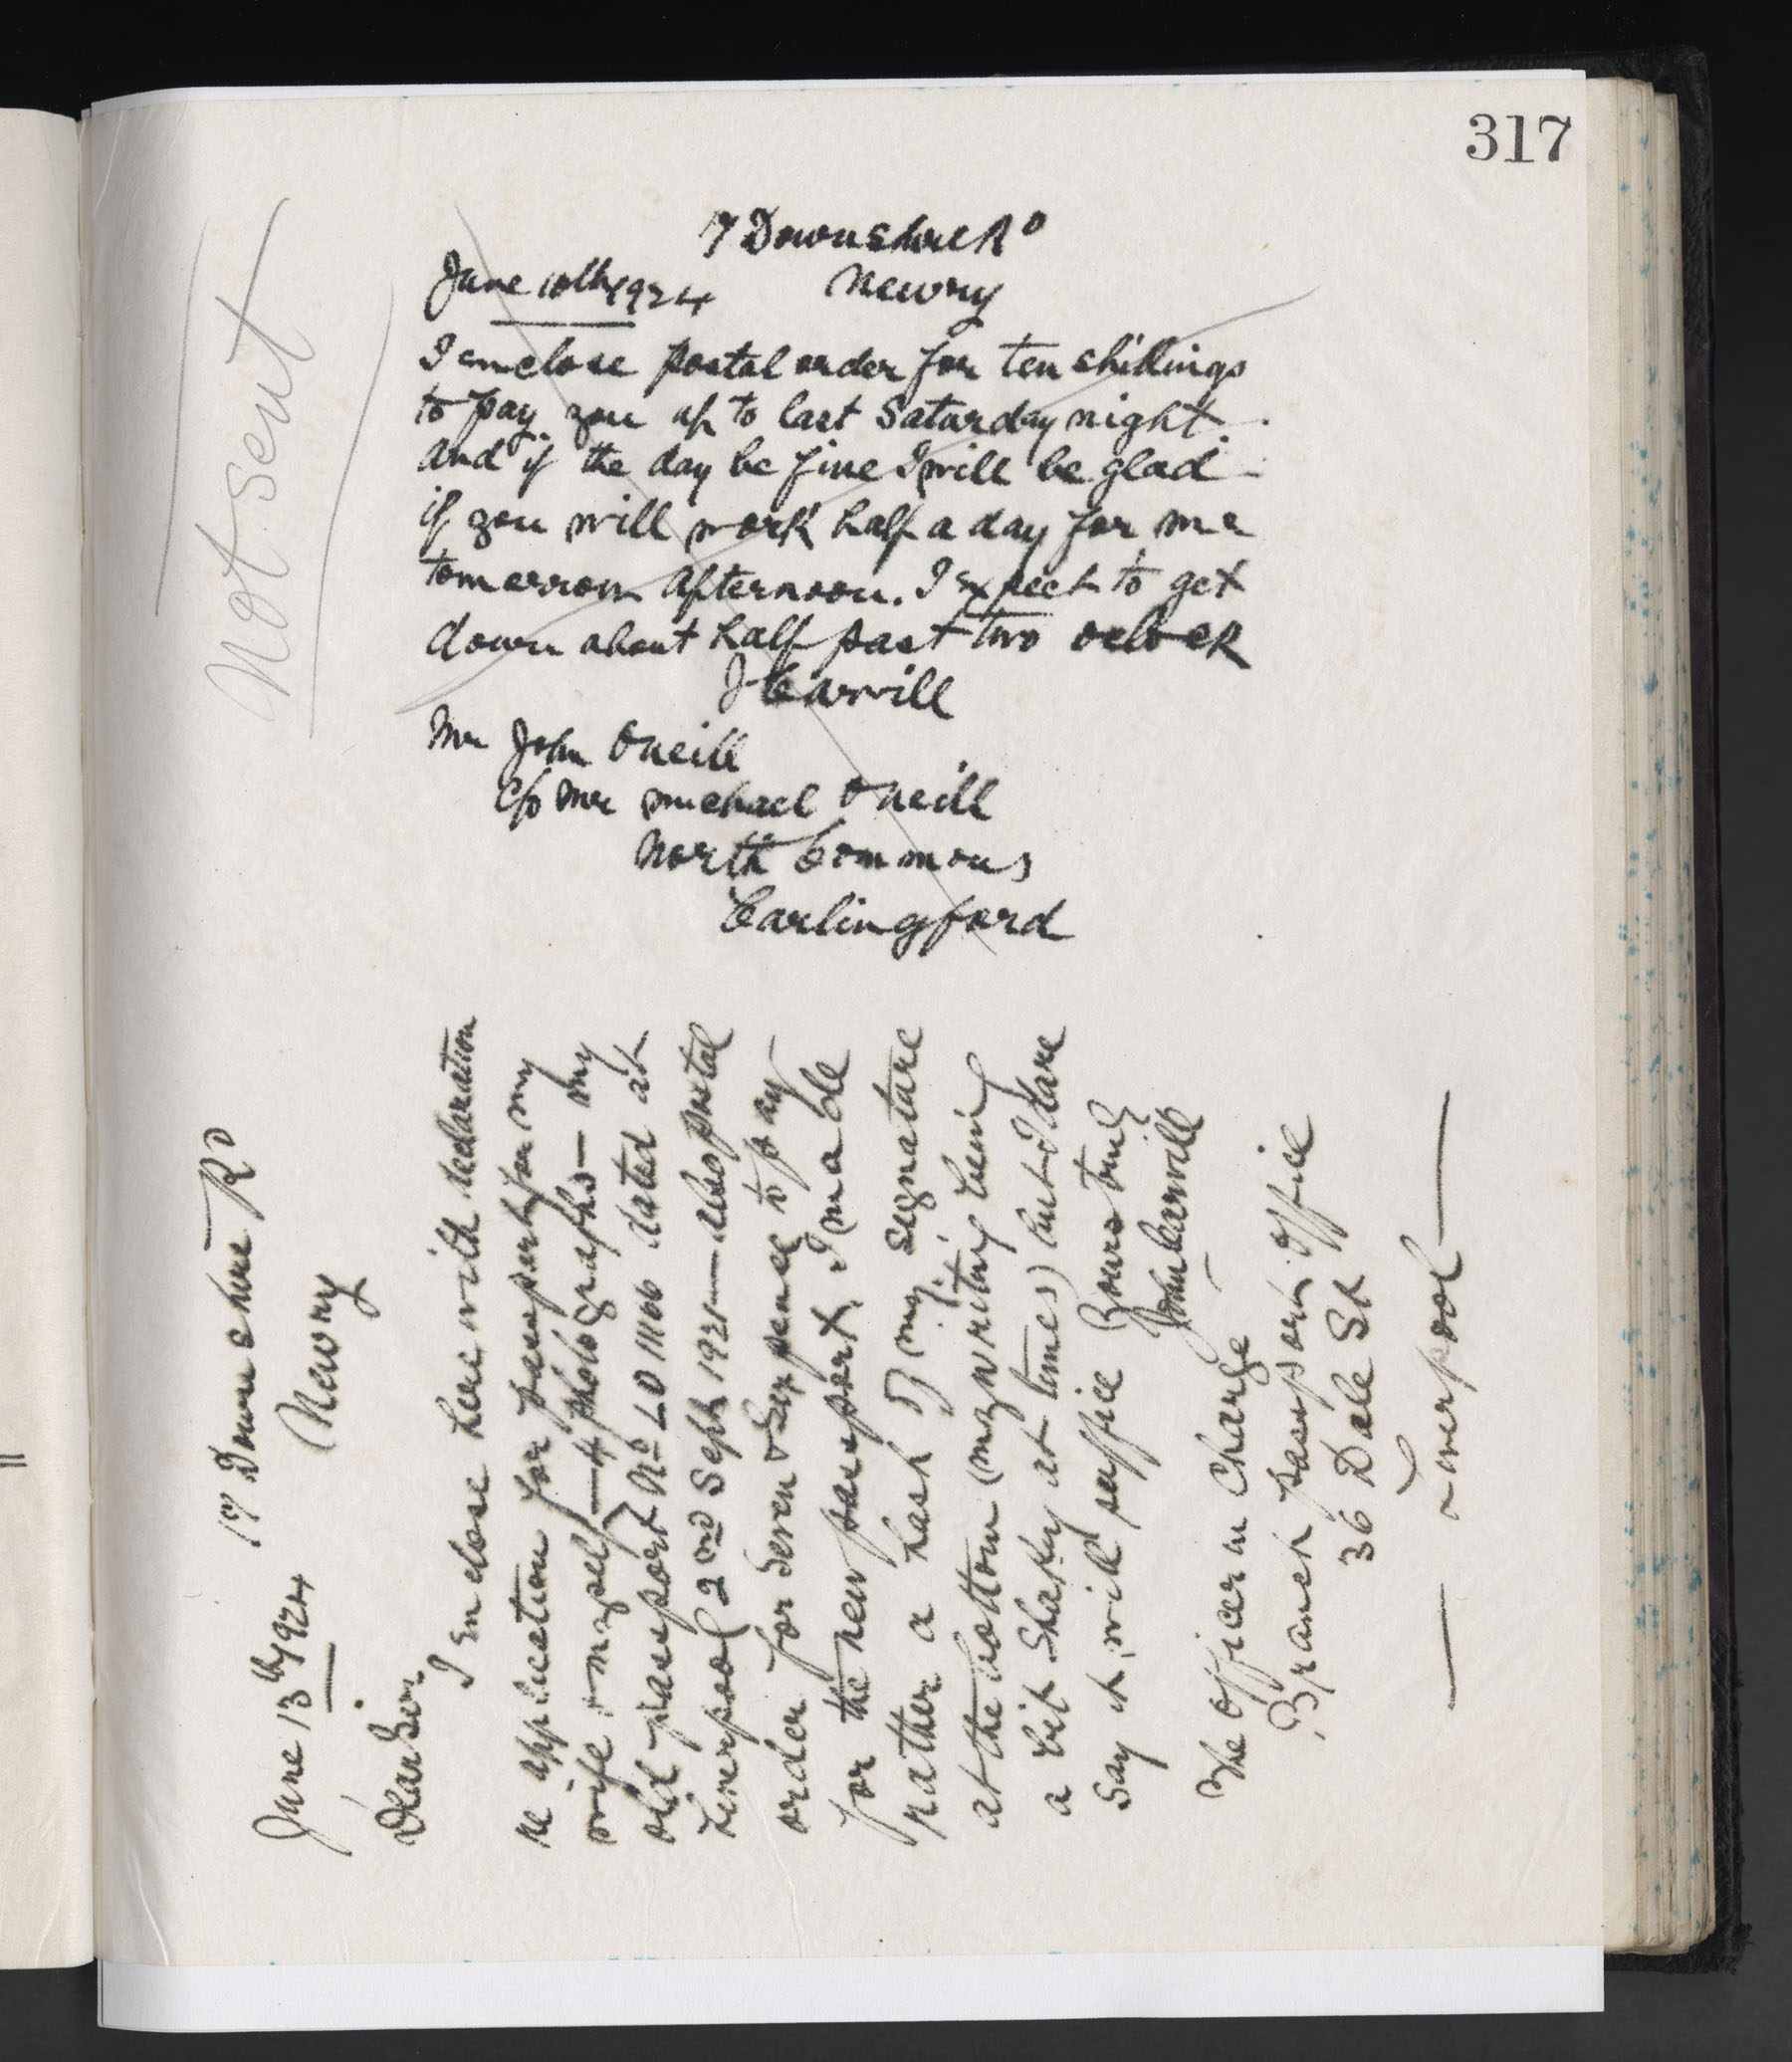 317
Not sent
17 Downshire Rd
June 10th 1924 Newry
I enclose postal order for ten shillings
to pay you up to last Saturday night
and if the day be fine I will be glad
if you will work half a day for me
tomorrow afternoon. I expect to get
down about half past two oclock
J Carvill
Mr John ONeill
C/o Mr Michael ONeill
North Commons
Carlingford
17 Downshire Rd
June 13th 1924 Newry
Dear Sir
I enclose herewith declaration
re application for passport for my
wife & myself — 4 photographs — my
old passport No LD 11166 dated at
Liverpool 2nd Sept 1921 — also postal
order for seven & sixpence to pay
for the new passport. I made
rather a hash of my signature
at the bottom (my writing being
a bit shaky at times) but I dare
say it will suffice Yours truly
John Carvill
The Officer in Charge
Branch passport office
36 Dale St
— Liverpool —